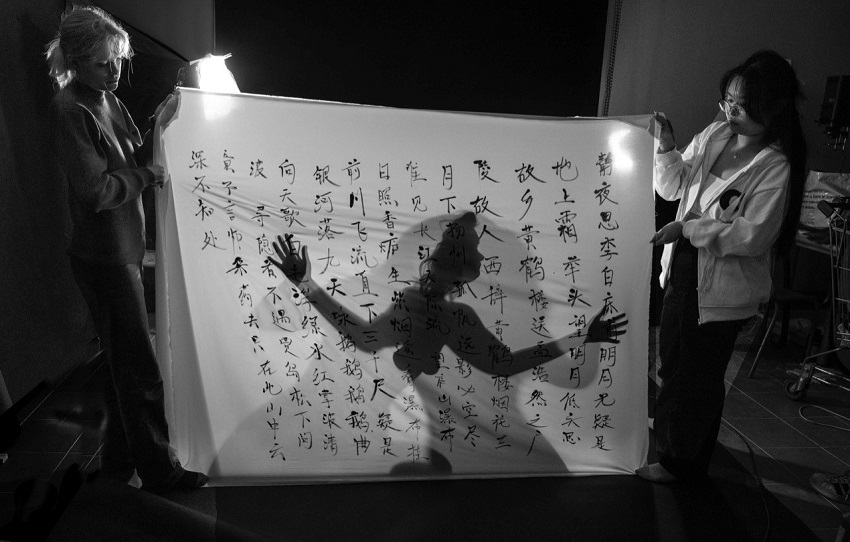 静夜思李白床明月光疑是
地上霜举头望明月低头思
故乡黄鹤楼送孟浩然之广
陵故人西辞黄鹤楼烟花三
月下扬州孤帆远影碧空尽
唯见长江天际流望庐山瀑布
日照香炉生紫烟遥看瀑布挂
前川飞流直下三千尺疑是
银河落九天咏鹅鹅鹅鹅曲
向天歌白毛浮绿水红掌拨清
波寻隐者不遇贾岛松下问
童子言师采药去只在此山中云
深不知处